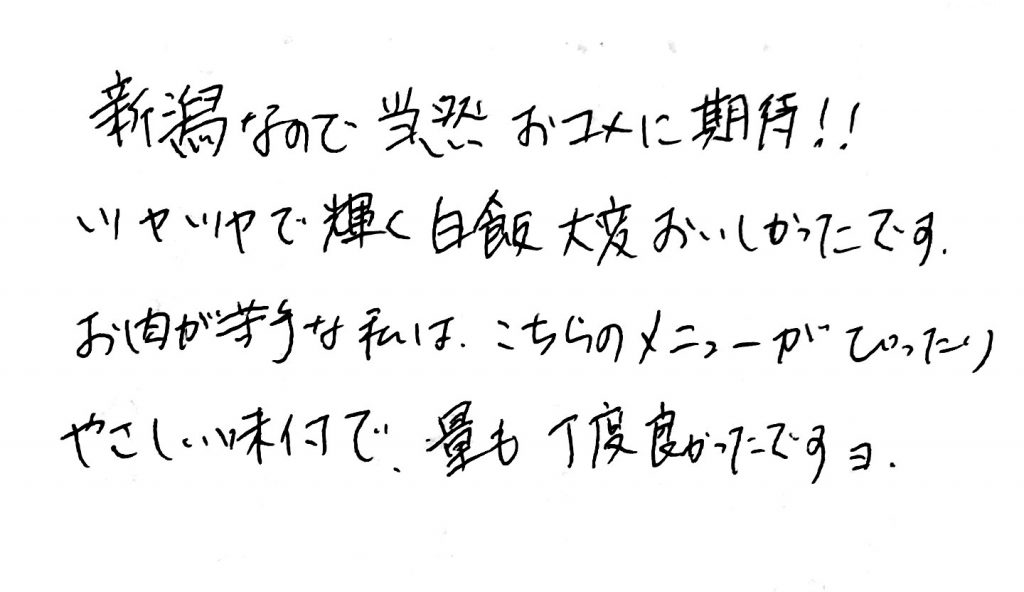 新潟なので当然おコメに期待!!
ツヤツヤで輝く白飯大変おいしかったです.
お肉が苦手な私は、こちらのメニューがぴったり
やさしい味付で、量も丁度良かったですョ.